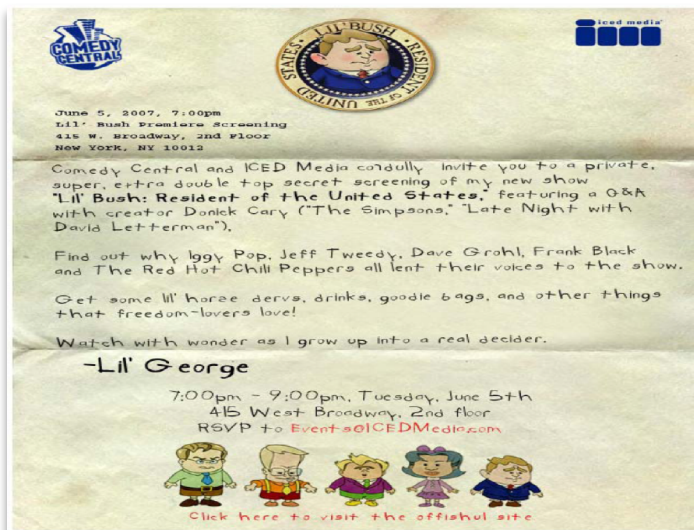 COMEDY
CENTRAL
LIL' BUSH
RESIDENT OF THE UNITED STATES
iced media
June 5, 2007, 7:00pm
Lil' Bush Premiere Screening
415 W. Broadway, 2nd Floor
New York, NY 10012
Comedy Central and ICED Media cordully invite you to a private,
super, extra double top secret screening of my new show
"Lil' Bush: Resident of the United States," featuring a Q&A
with creator Donick Cary ("The Simpsons," "Late Night with
David Letterman").
Find out why Iggy Pop, Jeff Tweedy, Dave Grohl, Frank Black
and The Red Hot Chili Peppers all lent their voices to the show.
Get some lil' horze dervs, drinks, goodie bags, and other things
that freedom-lovers love!
Watch with wonder as I grow up into a real decider.
-Lil' George
7:00pm - 9:00pm, Tuesday, June 5th
415 West Broadway, 2nd floor
RSVP to Events@ICEDMedia.com
Click here to visit the offishul site